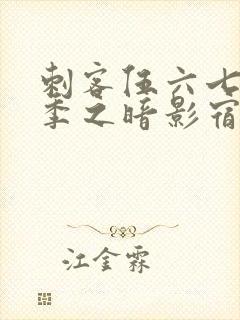 刺客伍六七
季之暗影宿
江金霖